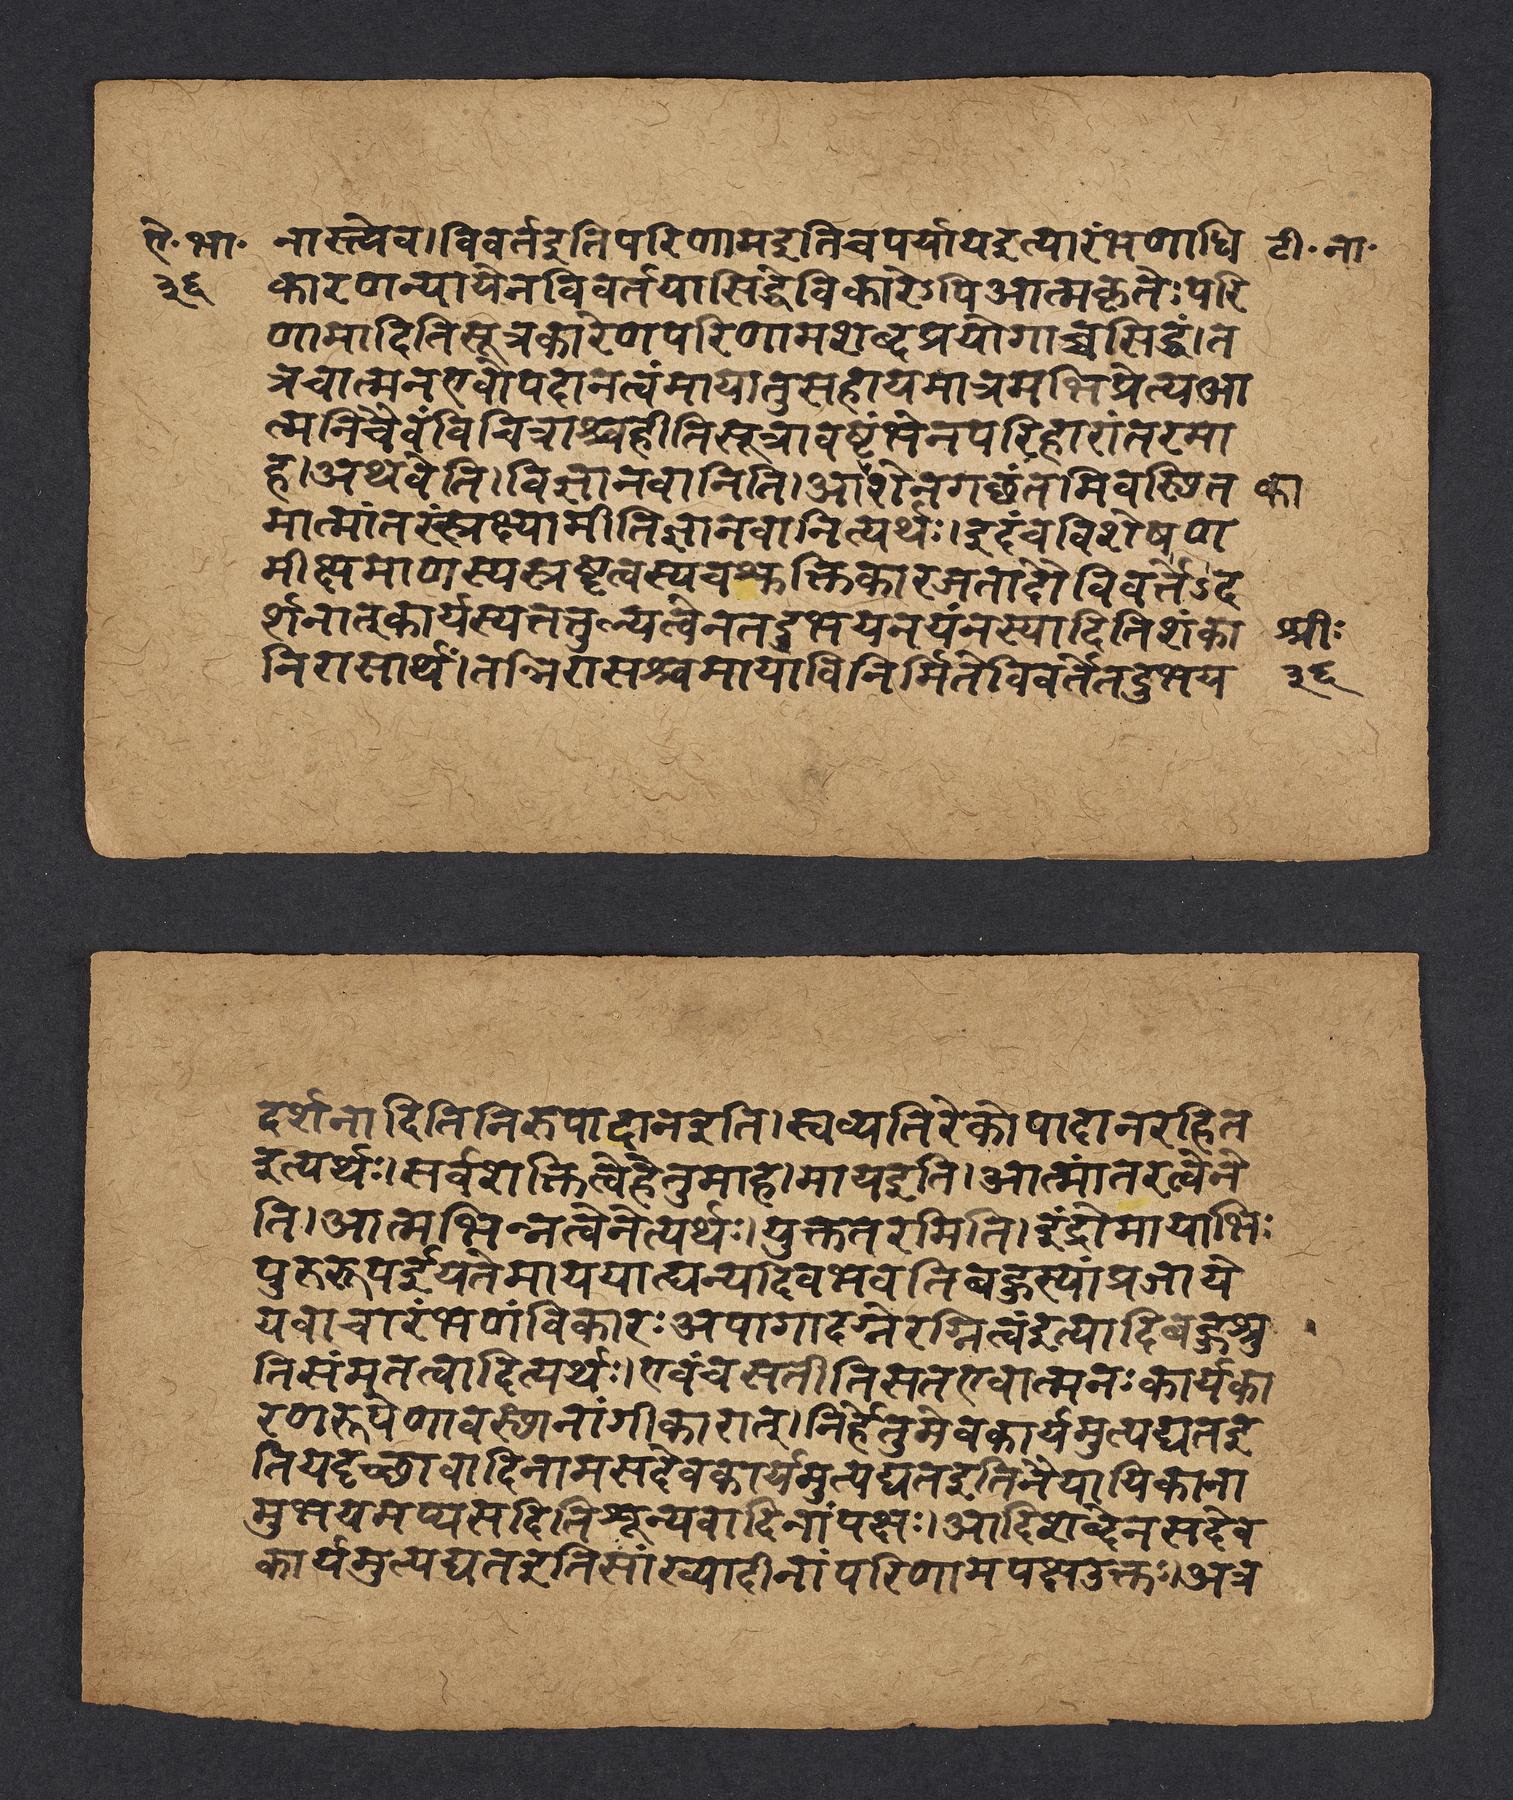 ऐ॰भा॰ नास्त्येव।विवर्तइतिपरिणामइतिचपर्यायइत्यारंभणाधि टी॰ना॰
३६ कारणन्यायेनविवर्तयासिद्धेविकारेऽपिआत्मकृतेःपरि
णामादितिसूत्रकारेणपरिणामशब्दप्रयोगाच्चसिद्धं।त
त्रचात्मनएवोपदानत्वंमायातुसहायमात्रमभिप्रेत्यआ
त्मनिचैवंविचित्राश्चहीतिसूत्रावष्टंभेनपरिहारांतरमा
ह।अथवेति।विज्ञानवानिति।आशेनगछंतमिवस्थित का
मात्मांतरंस्त्रक्ष्यामीतिज्ञानवानित्यर्थः।इदंचविशेषण
मीक्षमाणस्यस्त्रष्टृत्वस्यचश्रुक्तिकारजतादौविवर्तेऽद
र्शनात्कार्यस्यतत्तुल्यत्वेनतदुभयनयंनस्यादितिशंका श्रीः
निरासार्थं।तन्निरासश्चमायाविनिर्मितेविवर्तेतदुभय ३६
दर्शनादितिनिरुपादानइति।स्वव्यतिरेकोपादानरहित
इत्यर्थः।सर्वशक्तित्वेहेतुमाह।मायइति।आत्मांतरत्वेने
ति।आत्मभिन्नत्वेनेत्यर्थः।युक्ततरमिति।इंद्रोमायाभिः
पुरुरूपईयतेमाययात्यन्यदिवभवतिबहुस्यांप्रजाये
यवाचारंभणंविकारःअपागादग्नेरग्नित्वंइत्यादिबहुश्रु
तिसंमतत्वादित्यर्थः।एवंचसतीतिसतएवात्मनःकार्यका
रणरूपेणावस्थानांगीकारात्।निर्हेतुमेवकार्यमुत्पद्यतइ
तियदृच्छावादिनामसदेवकार्यमुत्पद्यतइतिनैयायिकाना
मुभयमप्यसदितिशून्यवादिनांपक्षः।आदिशब्देनसदेव
कार्यमुत्पद्यतइतिसांख्यादीनांपरिणामपक्षउक्तः।अत्र